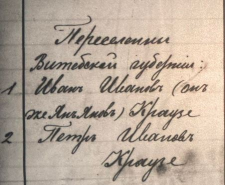 Переселенцы
Витебской губернiи:
1 Иванъ Ивановъ (онъ
же Анъ Ановъ) Краузе
2 Петръ Ивановъ
Краузе